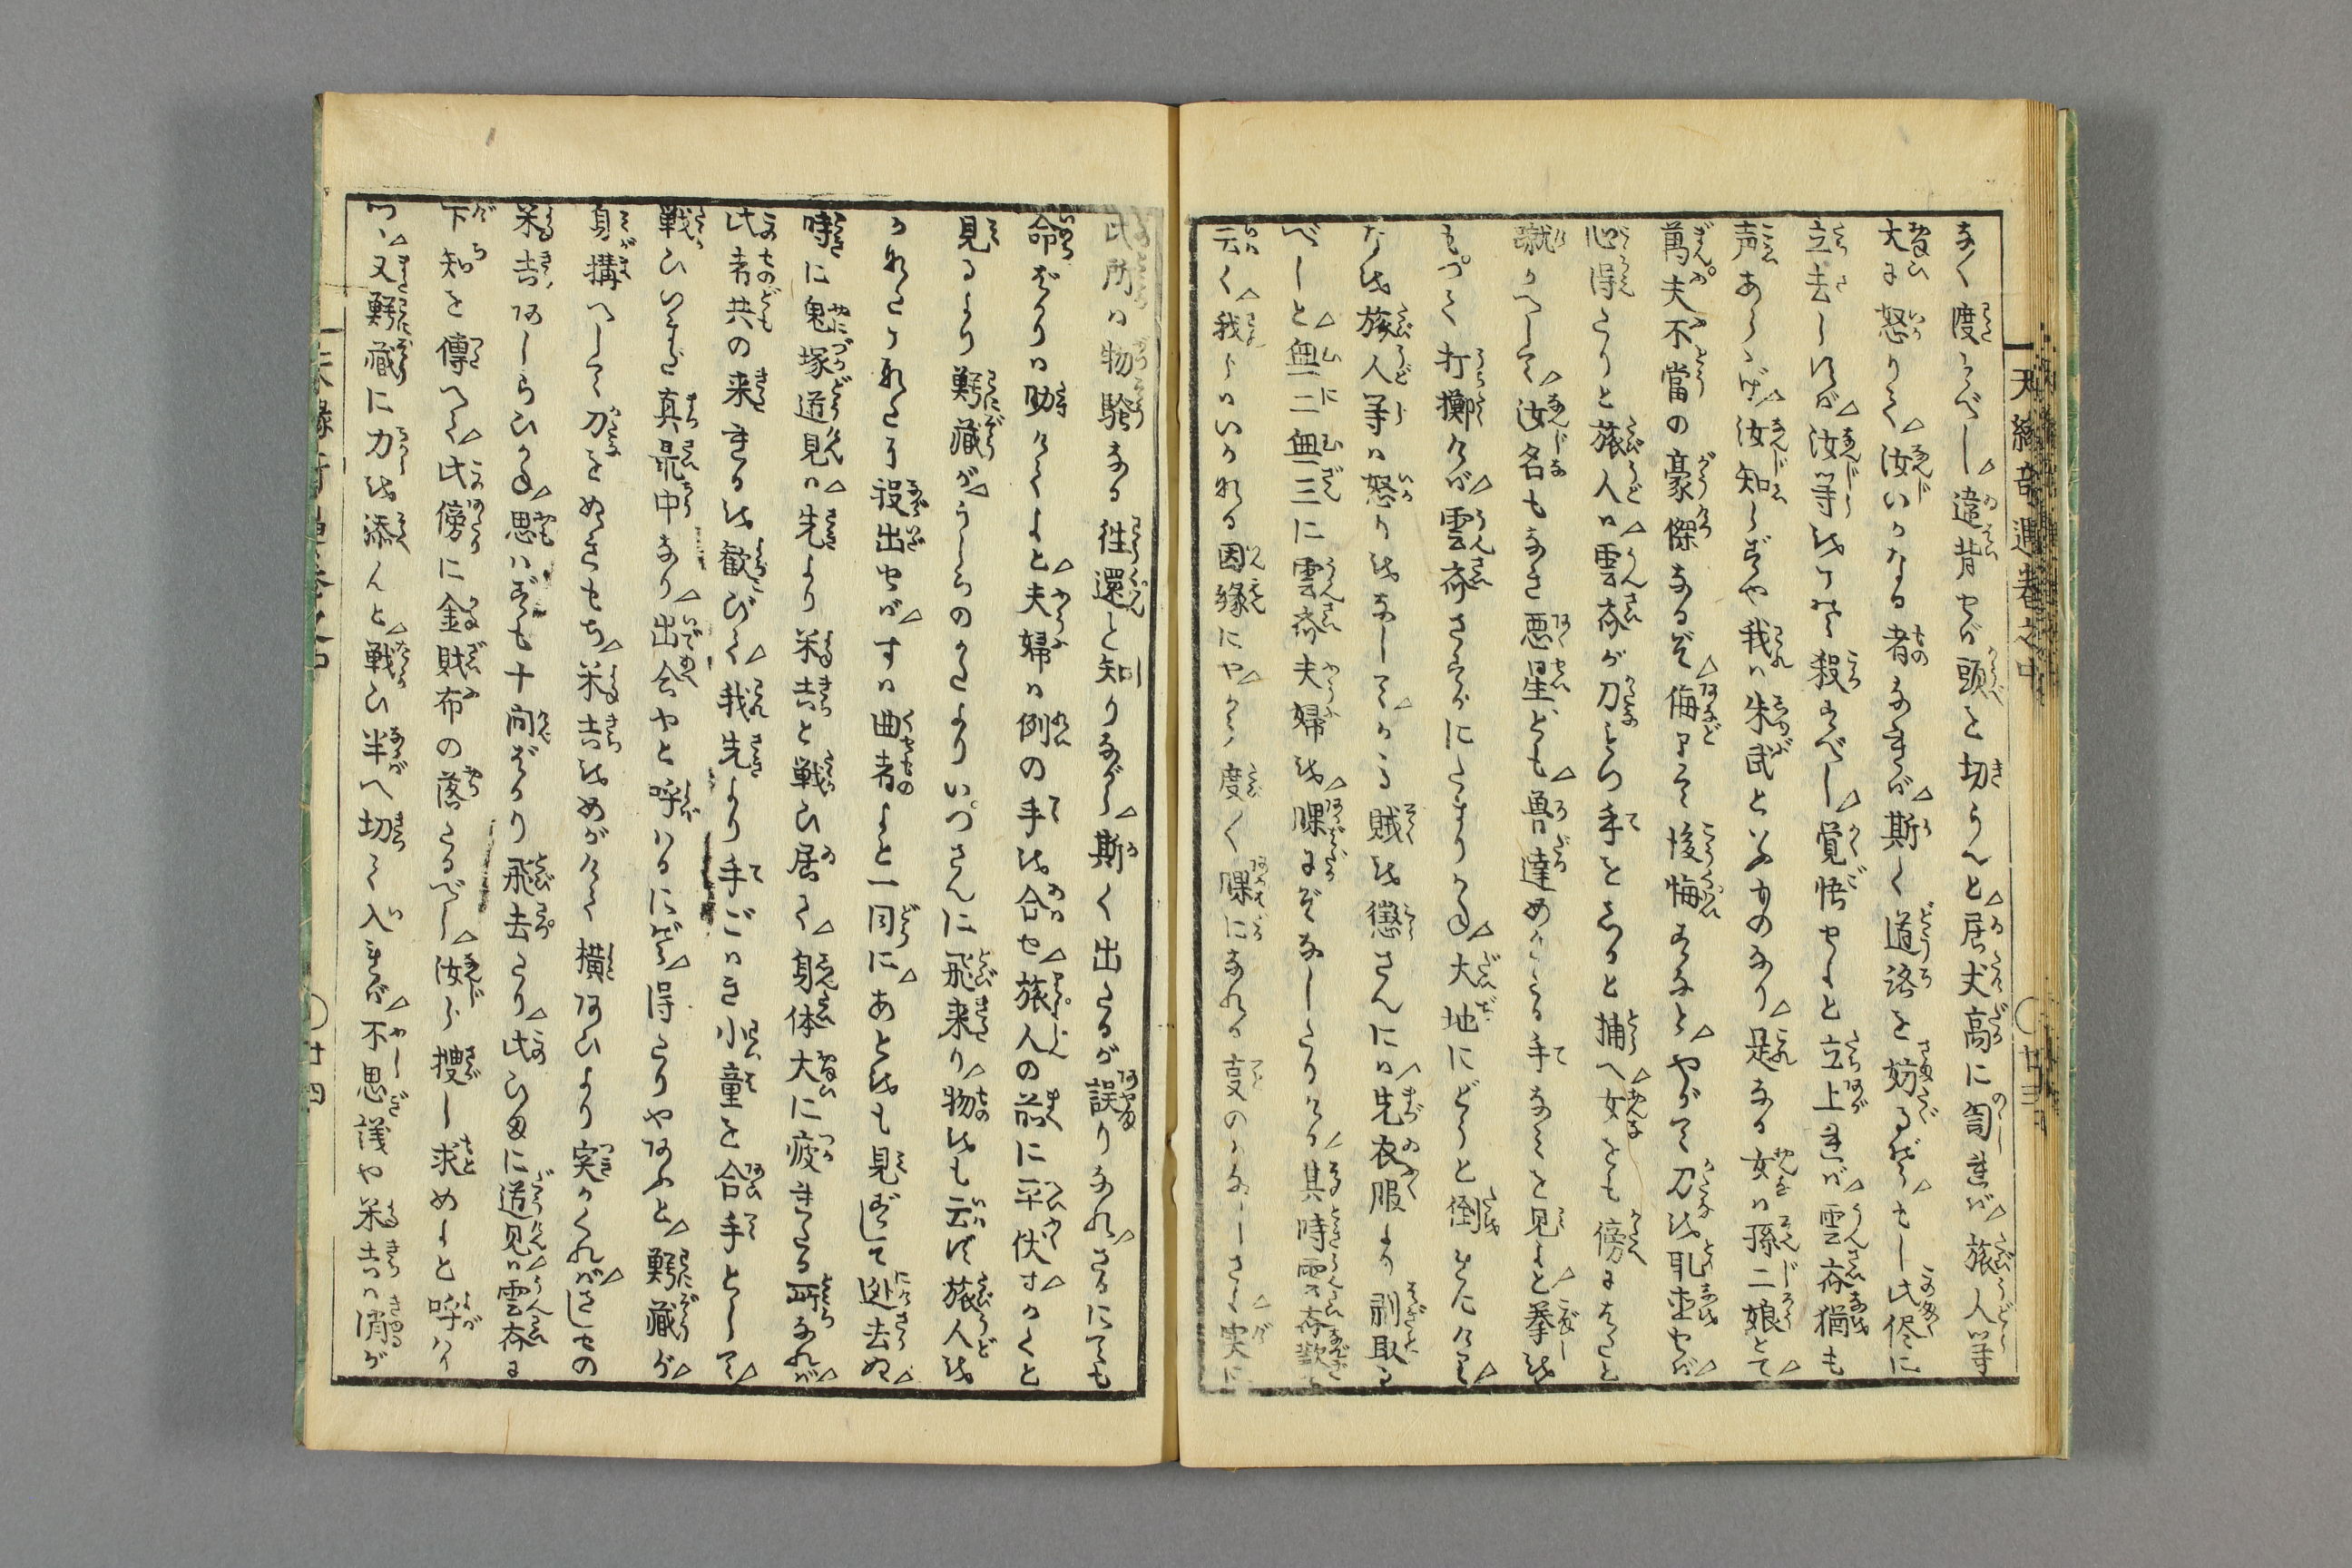 天縁奇遇巻之中
廿三
なく度すべし違背せば頭を切らんと居丈高に罵れば旅人等
大に怒りて汝いかなる者なれば斯く道路を妨るぞもし此侭に
立去しなば汝等をけて殺すべし覚悟せよと立上れば雲斎猶も
声あらゝげ汝知らずや我は朱武といふものなり是なる女は孫二娘とて
萬夫不當の豪傑なるぞ侮りて後悔するなとやがて刀を取直せば
心得たりと旅人は雲斎が刀もつ手をしかと捕へ女をも傍にはたと
蹴かへして汝名もなき悪星ども魯達めかくる手なみを見よと拳を
もつて打擲けば雲斎さすがにたまりかね大地にどうと倒をたけり
なを旅人等は怒りをなしてかゝる賊を懲さんには先衣服より剥取る
べしと無二無三に雲斎夫婦を脾にぞなしたりける其時雲斎歎
云く我らはいかなる因縁にやかく度〳〵脾になれる事のかなしさよ実に
此所は物騒なる往還と知りながら斯く出たるが誤りなれさるにても
命ばかりは助けくよと夫婦は例の手を合せ旅人の前に平伏すかくと
見るより鰐蔵がうしろのかたよりいつさんに飛来り物をも云はず旅人を
かなたこなたに投出せばすは曲者よと一同にあとをも見ずして迯去ぬ
時に鬼塚道見は先より米吉と戦ひ居て身体大に疲れたる所なれば
此者共の来れるを歓びて我先より手ごはき小童を合手として
戦ひいまだ真最中なり出会やと呼はるにぞ得たりやあふと鰐蔵が
身構へして刀をぬきもち米吉をめがけて横あひより突かくればさしもの
米吉あしらひかね思はずも十間ばかり飛去たり此ひまに道見は雲斎に
下知を傳へて此傍に金財布の落たるべし汝ら捜し求めよと呼はり
つゝ又鰐蔵に力を添んと戦ひ半へ切て入れば不思議や米吉は消が
廿四